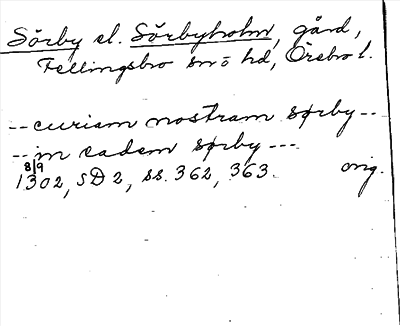 Sörby el. Sörbyholm, gård,
Fellingsbro snö hd, Örebro l.
-- curiam nostram sørby --
-- in eadem sørby ---
1302 8/9, SD 2, ss. 362, 363. orig.